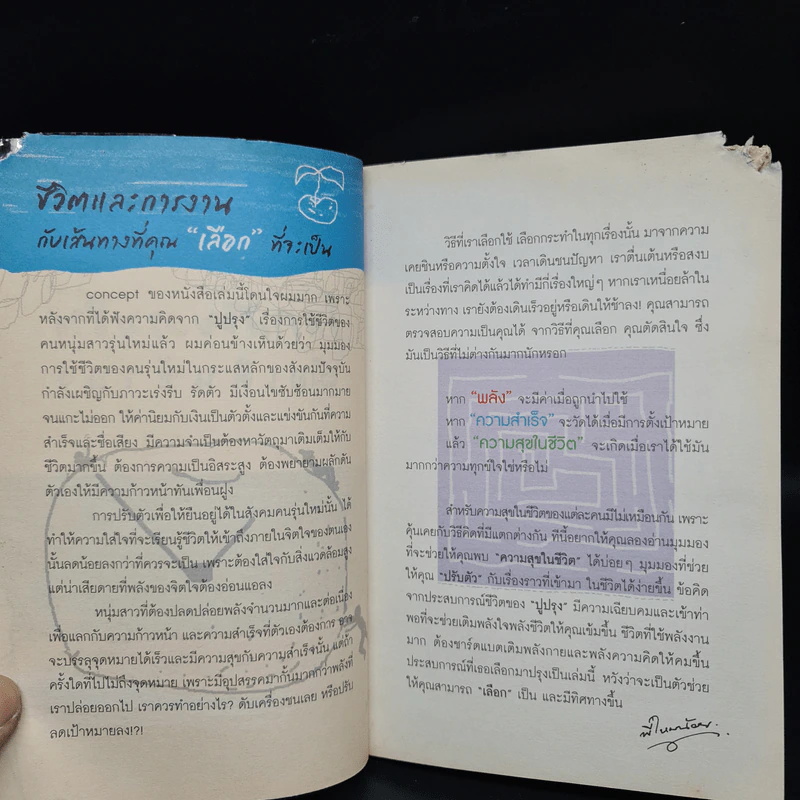 ชีวิตและการงาน
กับเส้นทางที่คุณ “เลือก” ที่จะเป็น
concept ของหนังสือเล่มนี้โดนใจผมมาก เพราะ
หลังจากที่ได้ฟังความคิดจาก “ปูปรุง” เรื่องการใช้ชีวิตของ
คนหนุ่มสาวรุ่นใหม่แล้ว ผมค่อนข้างเห็นด้วยว่า มุมมอง
การใช้ชีวิตของคนรุ่นใหม่ในกระแสหลักของสังคมปัจจุบัน
กำลังเผชิญกับภาวะเร่งรีบ รัดตัว มีเงื่อนไขซับซ้อนมากมาย
จนแกะไม่ออก ให้ค่านิยมกับเงินเป็นตัวตั้งและแข่งขันกันที่ความ
สำเร็จและชื่อเสียง มีความจำเป็นต้องหาวัตถุมาเติมเต็มให้กับ
ชีวิตมากขึ้น ต้องการความเป็นอิสระสูง ต้องพยายามผลักดัน
ตัวเองให้มีความก้าวหน้าทันเพื่อนฝูง
การปรับตัวเพื่อให้ยืนอยู่ได้ในสังคมคนรุ่นใหม่นั้น ได้
ทำให้ความใส่ใจที่จะเรียนรู้ชีวิตให้เข้าถึงภายในจิตใจของตนเอง
นั้นลดน้อยลงกว่าที่ควรจะเป็น เพราะต้องใส่ใจกับสิ่งแวดล้อมสูง
แต่น่าเสียดายที่พลังของจิตใจต้องอ่อนแอลง
หนุ่มสาวที่ต้องปลดปล่อยพลังจำนวนมากและต่อเนื่อง
เพื่อแลกกับความก้าวหน้า และความสำเร็จที่ตัวเองต้องการ อาจ
จะบรรลุจุดหมายได้เร็วและมีความสุขกับความสำเร็จนั้น แต่ถ้า
ครั้งใดที่ไปไม่ถึงจุดหมาย เพราะมีอุปสรรคมากั้นมากกว่าพลังที่
เราปล่อยออกไป เราควรทำอย่างไร? ดับเครื่องชนเลย หรือปรับ
ลดเป้าหมายลง!?!
วิธีที่เราเลือกใช้ เลือกกระทำในทุกเรื่องนั้น มาจากความ
เคยชินหรือความตั้งใจ เวลาเดินชนปัญหา เราตื่นเต้นหรือสงบ
เป็นเรื่องที่เราคิดได้แล้วได้ทำมีกี่เรื่องใหญ่ๆ หากเราเหนื่อยล้าใน
ระหว่างทาง เรายังต้องเดินเร็วอยู่หรือเดินให้ช้าลง! คุณสามารถ
ตรวจสอบความเป็นคุณได้ จากวิธีที่คุณเลือก คุณตัดสินใจ ซึ่ง
มันเป็นวิธีที่ไม่ต่างกันมากนักหรอก
หาก “พลัง” จะมีค่าเมื่อถูกนำไปใช้
หาก “ความสำเร็จ” จะวัดได้เมื่อมีการตั้งเป้าหมาย
แล้ว “ความสุขในชีวิต” จะเกิดเมื่อเราได้ใช้มัน
มากกว่าความทุกข์ใจใช่หรือไม่
สำหรับความสุขในชีวิตของแต่ละคนมีไม่เหมือนกัน เพราะ
คุ้นเคยกับวิธีคิดที่มีแตกต่างกัน ทีนี้อยากให้คุณลองอ่านมุมมอง
ที่จะช่วยให้คุณพบ “ความสุขในชีวิต” ได้บ่อยๆ มุมมองที่ช่วย
ให้คุณ “ปรับตัว” กับเรื่องราวที่เข้ามา ในชีวิตได้ง่ายขึ้น ข้อคิด
จากประสบการณ์ชีวิตของ “ปูปรุง” มีความเฉียบคมและเข้าท่า
พอที่จะช่วยเติมพลังใจพลังชีวิตให้คุณเข้มขึ้น ชีวิตที่ใช้พลังงาน
มาก ต้องชาร์ตแบตเติมพลังกายและพลังความคิดให้คมขึ้น
ประสบการณ์ที่เธอเลือกมาปรุงเป็นเล่มนี้ หวังว่าจะเป็นตัวช่วย
ให้คุณสามารถ “เลือก” เป็น และมีทิศทางขึ้น